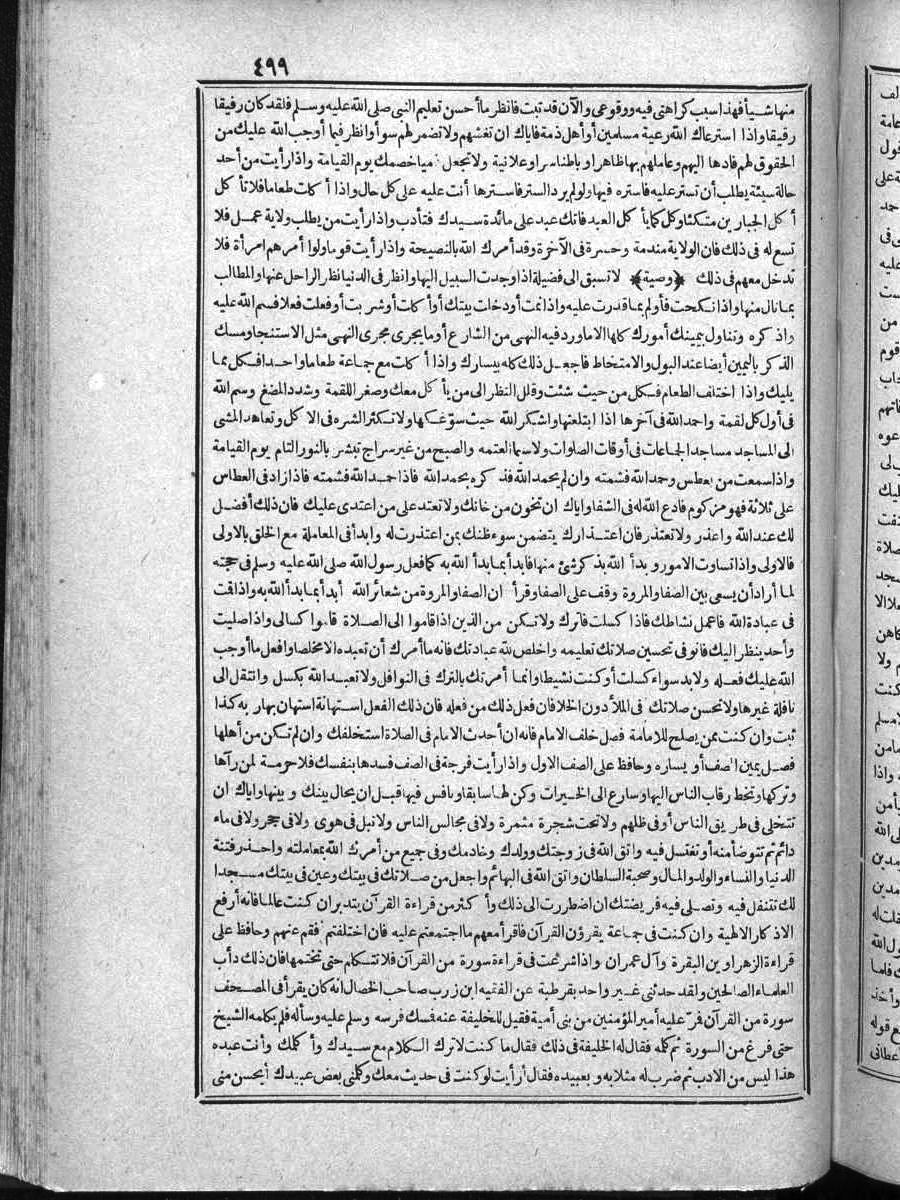 ٤٩٩
منها شيأ فهذا سبب كراهتي فيه ووقوعي والآن قد تبت فانظر ما أحسن تعليم النبي صلى الله عليه وسلم فلقد كان رفيقا
رفيقا واذا استرعاك الله رعية مسلمين أو أهل ذمة فاياك ان تغشهم ولا تضمر لهم سوأ وانظر فيما أوجب الله عليك من
الحقوق لهم فادها اليهم وعاملهم بها ظاهرا وباطنا سرا وعلانية ولا تجعل ذميا خصمك يوم القيامة واذا رأيت من أحد
حالة سيئة يطلب أن تستر عليه فاستره فيها ولو لم يرد الستر فاسترها أنت عليه على كل حال واذا أكلت طعاما فلا تأكل
أكل الجبارين متكئا وكل كما يأكل العبد فانك عبد على مائدة سيدك فتأدب واذا رأيت من يطلب ولاية عمل فلا
تسع له في ذلك فان الولاية مندمة وحسرة في الآخرة وقد أمرك الله بالنصيحة واذا رأيت قوما ولوا أمرهم امرأة فلا
تدخل معهم في ذلك ﴿وصية﴾ لا تسبق الى فضيلة اذا وجدت السبيل اليها وانظر في الدنيا نظر الراحل عنها والمطالب
بما نال منها واذا نكحت فأولم بما قدرت عليه واذا نمت أو دخلت بيتك أو أكلت أو شربت أو فعلت فعلا فسم الله عليه
واذكره وتناول بيمينك أمورك كلها الا ما ورد فيه النهى من الشارع أو ما يجرى مجرى النهى مثل الاستنجا ومسك
الذكر باليمين أيضا عند البول والامتخاط فاجعل ذلك كله بيسارك واذا أكلت مع جماعة طعاما واحدا فكل مما
يليك واذا اختلف الطعام فكل من حيث شئت وقلل النظر الى من يأكل معك وصغر اللقمة وشدد المضغ وسم الله
في أول كل لقمة واحمد الله في آخرها اذا ابتلعتها واشكر الله حيث سوّغكها ولا تكثر الشره في الاكل وتعاهد المشي
الى المساجد مساجد الجماعات في أوقات الصلوات ولا سيما العتمه والصبح من غير سراج تبشر بالنور التام يوم القيامة
واذا سمعت من يعطس وحمد الله فشمته وان لم يحمد الله فذكره بحمد الله فاذا حمد الله فشمته فاذا زاد في العطاس
على ثلاثة فهو مزكوم فادع الله له في الشفا واياك ان تخون من خانك ولا تعتد على من اعتدى عليك فان ذلك أفضل
لك عند الله واعذر ولا تعتذر فان اعتذارك يتضمن سوء ظنك بمن اعتذرت له وابدأ في المعاملة مع الخلق بالاولى
فالاولى واذا تساوت الامور وبدأ الله بذكر شئ منها فابدأ بما بدأ الله به كما فعل رسول الله صلى الله عليه وسلم في حجته
لما أراد أن يسعى بين الصفا والمروة وقف على الصفا وقرأ ان الصفا والمروة من شعائر الله أبدأ بما بدأ الله به واذا قت
في عبادة الله فاعمل نشاطك فاذا كسلت فاترك ولا تكن من الذين اذا قاموا الى الصلاة قاموا كسالى واذا صليت
وأحد ينظر اليك فانو في تحسين صلاتك تعليمه واخلص لله عبادتك فانه ما أمرك أن تعبده الا مخلصا وافعل ما أوجب
الله عليك فعله ولا بد سواء كسلت أو كنت نشيطا وانما أمرتك بالترك في النوافل ولا تعبد الله بكسل وانتقل الى
نافلة غيرها ولا تحسن صلاتك في الملأ دون الخلا فان فعل ذلك من فعله فان ذلك الفعل استهانة استهان بها ربه كذا
ثبت وان كنت ممن يصلح للامامة فصل خلف الامام فانه ان أحدث الامام في الصلاة استخلفك وان لم تكن من أهلها
فصل يمين الصف أو يساره وحافظ على الصف الاول واذا رأيت فرجة في الصف فسدها بنفسك فلا حرمة لمن رآها
وتركها وتخط رقاب الناس اليها وسارع الى الخيرات وكن لها سابقا ونافس فيها قبل ان يحال بينك وبينها واياك ان
تتخلى في طريق الناس أو في ظلهم ولا تحت شجرة مثمرة ولا في مجالس الناس ولا تبل في هوى ولا في جحر ولا في ماء
دائم ثم تتوضأ منه أو تغتسل فيه واتق الله في زوجتك وولدك وخادمك وفي جميع من أمرك الله بمعاملته واحذر فتنة
الدنيا والنساء والولد والمال وصحبة السلطان واتق الله في البهائم واجعل من صلاتك في بيتك وعين في بيتك مسجدا
لك تتنفل فيه وتصلى فيه فريضتك ان اضطررت الى ذلك وأكثر من قراءة القرآن بتدبر ان كنت عالما فانه أرفع
الاذكار الالهية وان كنت في جماعة يقرؤن القرآن فاقرأ معهم ما اجتمعتم عليه فان اختلفتم فقم عنهم وحافظ على
قراءة الزهراوين البقرة وآل عمران واذا شرعت في قراءة سورة من القرآن فلا تتكلم حتى تختمها فان ذلك دأب
العلماء الصالحين ولقد حدثني غير واحد بقرطبة عن الفقيه ابن زرب صاحب الخصال انه كان يقرأ في المصحف
سورة من القرآن فرّ عليه أمير المؤمنين من بني أمية فقيل للخليفة عنه فسك فرسه وسلم عليه وسأله فلم يكلمه الشيخ
حتى فرغ من السورة ثم كلمه فقال له الخليفة في ذلك فقال ما كنت لاترك الكلام مع سيدك وأكلمك وأنت عبده
هذا ليس من الادب ثم ضرب له مثلا به وبعبيده فقال أرأيت لو كنت في حديث معك وكلمني بعض عبيدك أيحسن مني